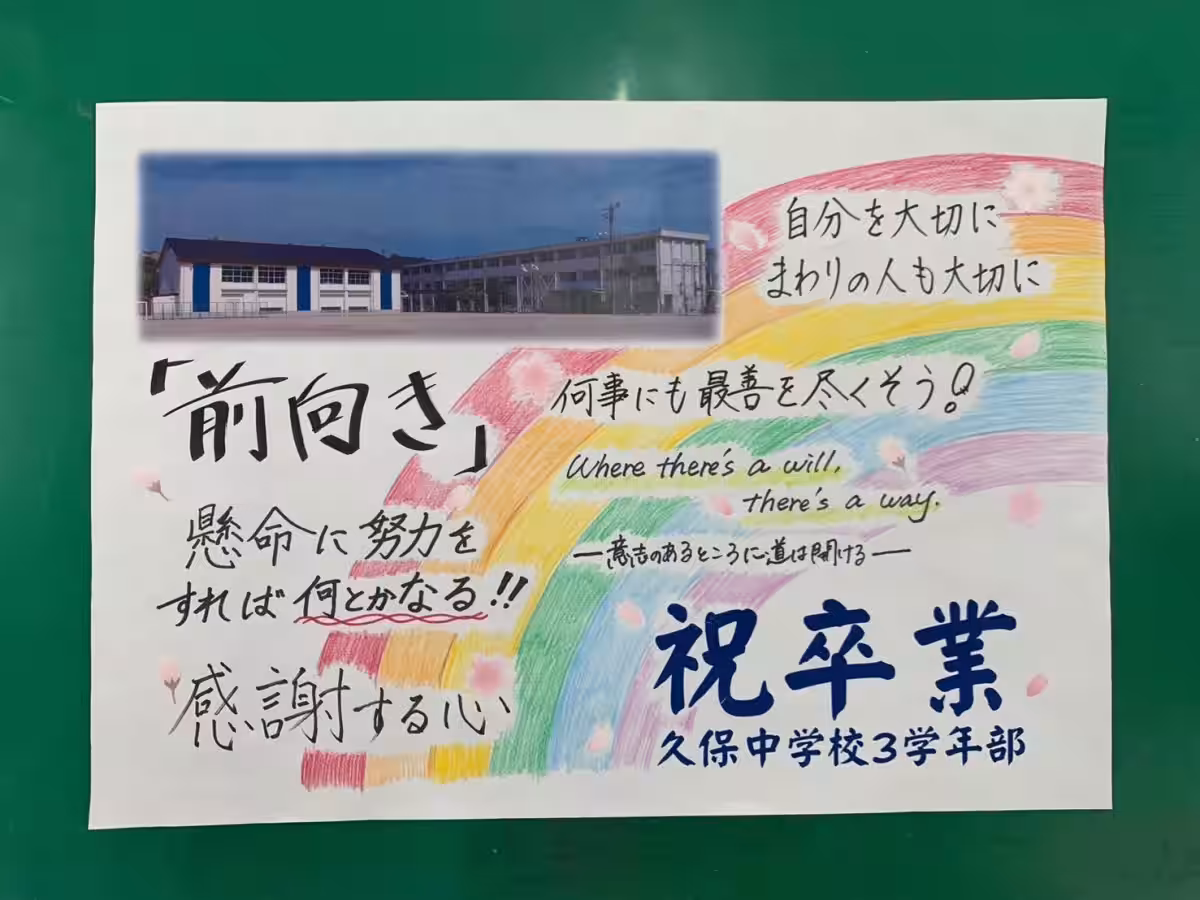 自分を大切に
まわりの人も大切に
「前向き」
何事にも最善を尽くそう!
Where there's a will,
there's a way.
―意志のあるところに道は開ける―
懸命に努力を
すれば何とかなる!!
感謝する心
祝卒業
久保中学校3学年部